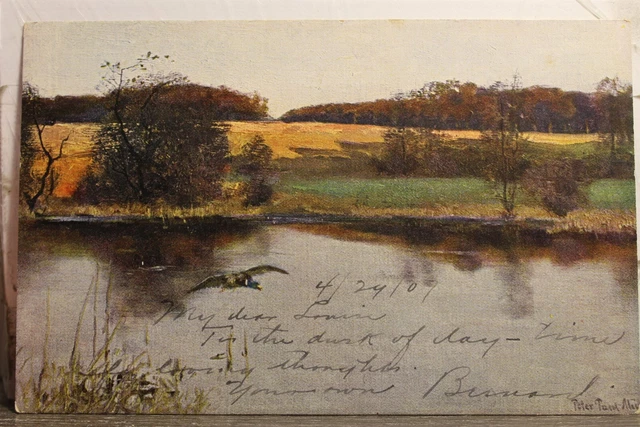 4/29/09
My dear Louise
Tis the dusk of day - time
loving thoughts.
Your own Bernard.
Peter Paul